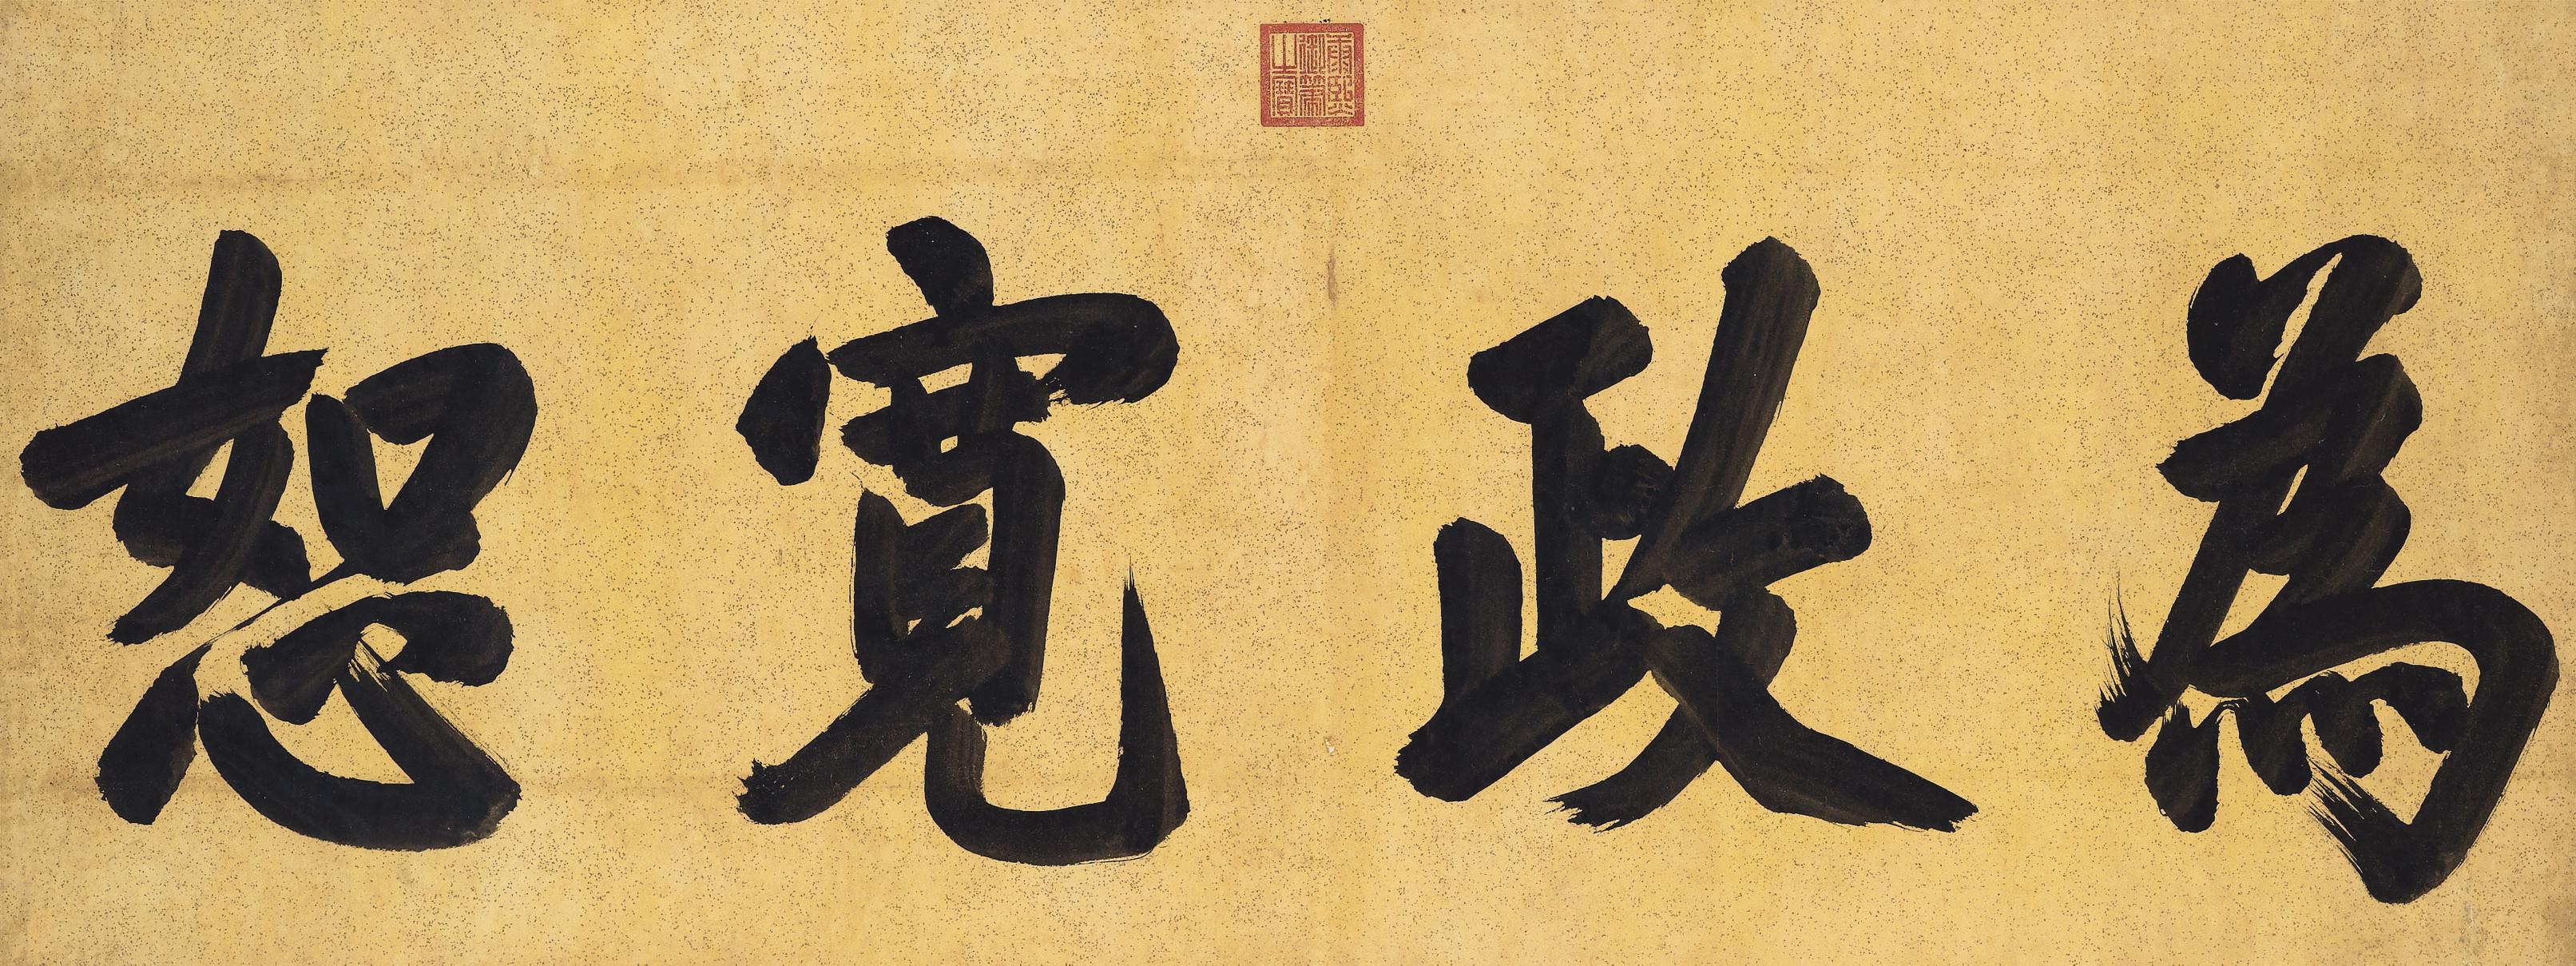 為政寬恕
康熙
御筆
之寶